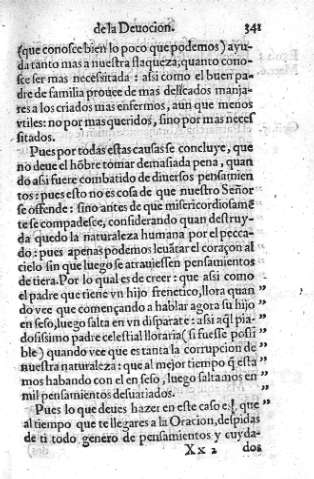 de la Deuocion. 341
(que conosce bien lo poco que podemos) ayu-
da tanto mas a nuestra flaqueza, quanto cono-
sce ser mas necessitada : assi como el buen pa-
dre de familia prouee de mas delicados manja-
res a los criados mas enfermos, aũn que menos
vtiles: no por mas queridos, sino por mas neces
sitados.
Pues por todas estas causas se concluye, que
no deue el hõbre tomar demasiada pena, quan
do assi fuere combatido de diuersos pensamien
tos: pues esto no es cosa de que nuestro Señor
se offende : sino antes de que misericordiosamẽ
te se compadesce, considerando quan destruy-
da quedo la naturaleza humana por el pecca-
do: pues apenas podemos leuãtar el coraçon al
cielo sin que luego se atrauiessen pensamientos
de tierra. Por lo qual es de creer: que assi como
el padre que tiene vn hijo frenetico, llora quan ”
do vee que començando a hablar agora su hijo ”
en seso, luego salta en vn disparate: assi aq̃l pia- ”
dosissimo padre celestial lloraria (si fuesse possi ”
ble) quando vee que es tanta la corrupcion de ”
nuestra naturaleza: que al mejor tiempo q̃ esta ”
mos hablando con el en seso, luego saltamos en ”
mil pensamientos desuariados. ”
Pues lo que deues hazer en este caso es, que ”
al tiempo que te llegares a la Oracion, despidas ”
de ti todo genero de pensamientos y cuyda- ”
Xx 2 dos